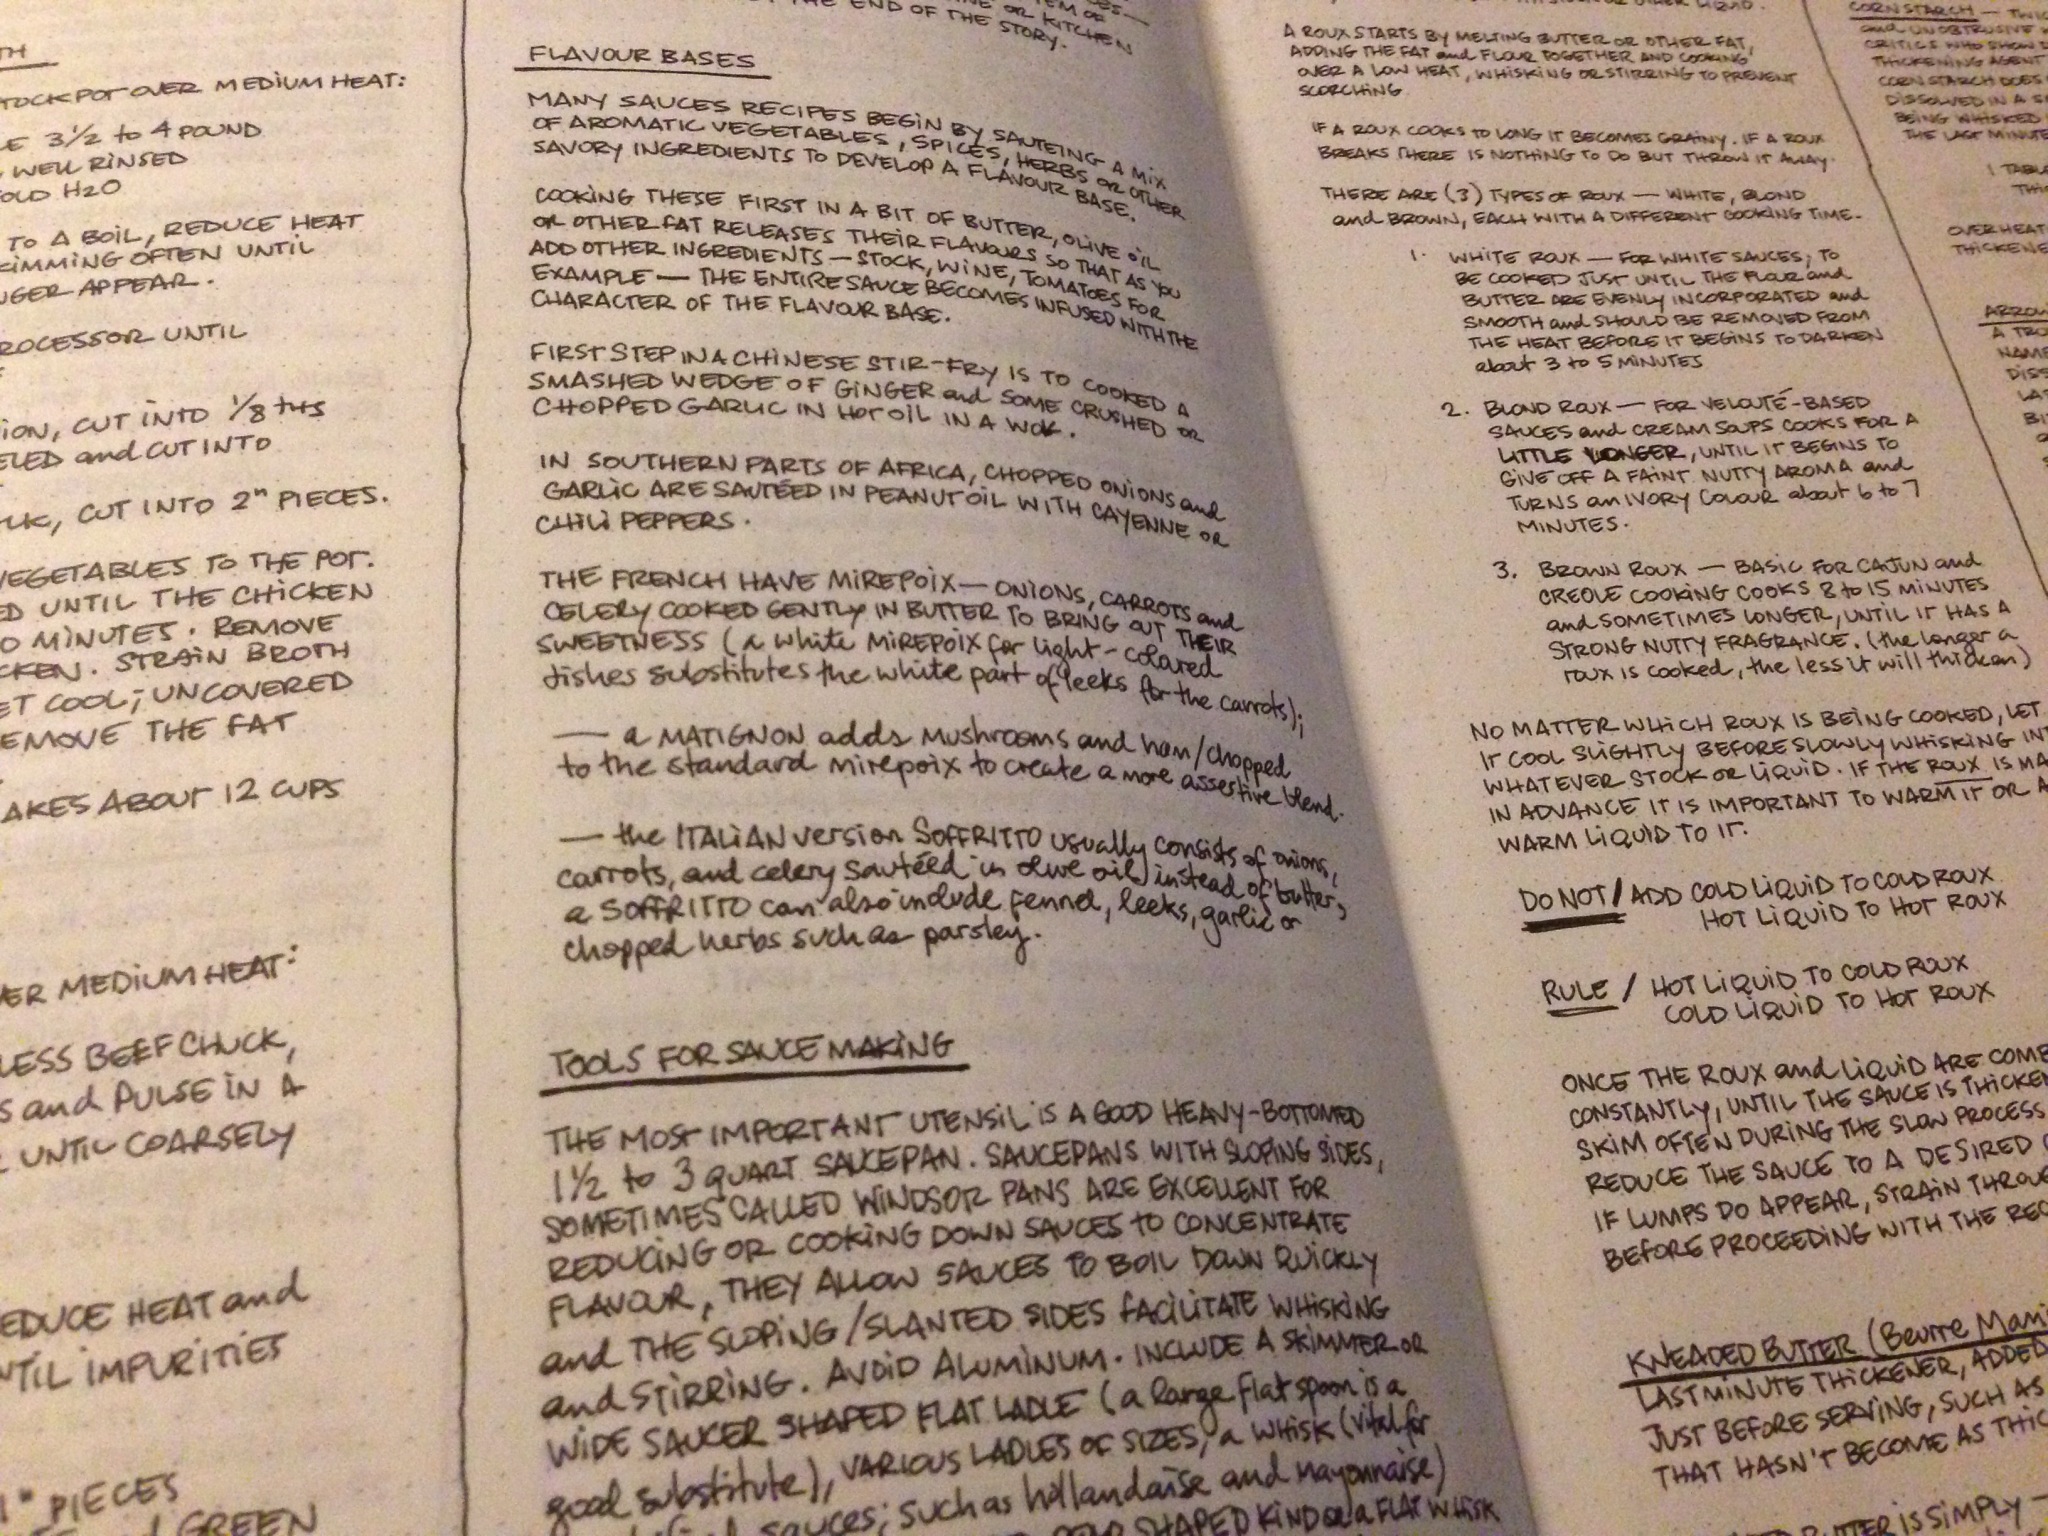 TH
STOCKPOT OVER MEDIUM HEAT:
3½ to 4 POUND
WELL RINSED
COLD H2O
TO A BOIL, REDUCE HEAT
SKIMMING OFTEN UNTIL
APPEAR.
PROCESSOR UNTIL
CUT INTO 1/8 ths
and CUT INTO
CUT INTO 2" PIECES.
VEGETABLES TO THE POT.
UNTIL THE CHICKEN
MINUTES. REMOVE
STRAIN BROTH
COOL; UNCOVERED
REMOVE THE FAT
MAKES ABOUT 12 CUPS
OVER MEDIUM HEAT:
LESS BEEF CHUCK,
and PULSE IN A
UNTIL COARSELY
REDUCE HEAT and
UNTIL IMPURITIES
1" PIECES
GREEN
OR KITCHEN
THE END OF THE STORY.
FLAVOUR BASES
MANY SAUCES RECIPES BEGIN BY SAUTEING A MIX
OF AROMATIC VEGETABLES, SPICES, HERBS OR OTHER
SAVORY INGREDIENTS TO DEVELOP A FLAVOUR BASE.
COOKING THESE FIRST IN A BIT OF BUTTER, OLIVE OIL
OR OTHER FAT RELEASES THEIR FLAVOURS SO THAT AS YOU
ADD OTHER INGREDIENTS — STOCK, WINE, TOMATOES FOR
EXAMPLE — THE ENTIRE SAUCE BECOMES INFUSED WITH THE
CHARACTER OF THE FLAVOUR BASE.
FIRST STEP IN A CHINESE STIR-FRY IS TO COOKED A
SMASHED WEDGE OF GINGER and SOME CRUSHED OR
CHOPPED GARLIC IN HOT OIL IN A WOK.
IN SOUTHERN PARTS OF AFRICA, CHOPPED ONIONS and
GARLIC ARE SAUTÉED IN PEANUT OIL WITH CAYENNE OR
CHILI PEPPERS.
THE FRENCH HAVE MIREPOIX — ONIONS, CARROTS and
CELERY COOKED GENTLY IN BUTTER TO BRING OUT THEIR
SWEETNESS (a white MIREPOIX for light-colored
dishes substitutes the white part of leeks for the carrots);
— a MATIGNON adds mushrooms and ham/chopped
to the standard mirepoix to create a more assertive blend.
— the ITALIAN version SOFFRITTO usually consists of onions,
carrots, and celery sautéed in olive oil) instead of butter,
a SOFFRITTO can also include fennel, leeks, garlic or
chopped herbs such as parsley.
TOOLS FOR SAUCE MAKING
THE MOST IMPORTANT UTENSIL IS A GOOD HEAVY-BOTTOMED
1½ to 3 QUART SAUCEPAN. SAUCEPANS WITH SLOPING SIDES,
SOMETIMES CALLED WINDSOR PANS ARE EXCELLENT FOR
REDUCING OR COOKING DOWN SAUCES TO CONCENTRATE
FLAVOUR, THEY ALLOW SAUCES TO BOIL DOWN QUICKLY
and THE SLOPING/SLANTED SIDES FACILITATE WHISKING
and STIRRING. AVOID ALUMINUM. INCLUDE A SKIMMER OR
WIDE SAUCER SHAPED FLAT LADLE (a large flat spoon is a
good substitute), VARIOUS LADLES OF SIZES, a WHISK (vital for
sauces; such as hollandaise and mayonnaise)
SHAPED KIND or a FLAT WHISK
A ROUX STARTS BY MELTING BUTTER OR OTHER FAT,
ADDING THE FAT and FLOUR TOGETHER AND COOKING
OVER A LOW HEAT, WHISKING OR STIRRING TO PREVENT
SCORCHING
IF A ROUX COOKS TO LONG IT BECOMES GRAINY. IF A ROUX
BREAKS THERE IS NOTHING TO DO BUT THROW IT AWAY.
THERE ARE (3) TYPES OF ROUX — WHITE, BLOND
and BROWN, EACH WITH A DIFFERENT COOKING TIME.
1. WHITE ROUX — FOR WHITE SAUCES; TO
BE COOKED JUST UNTIL THE FLOUR and
BUTTER ARE EVENLY INCORPORATED and
SMOOTH and SHOULD BE REMOVED FROM
THE HEAT BEFORE IT BEGINS TO DARKEN
about 3 to 5 MINUTES
2. BLOND ROUX — FOR VELOUTÉ-BASED
SAUCES and CREAM SOUPS COOKS FOR A
LITTLE LONGER, UNTIL IT BEGINS TO
GIVE OFF A FAINT NUTTY AROMA and
TURNS an IVORY COLOUR about 6 to 7
MINUTES.
3. BROWN ROUX — BASIC FOR CAJUN and
CREOLE COOKING COOKS 8 to 15 MINUTES
and SOMETIMES LONGER, UNTIL IT HAS A
STRONG NUTTY FRAGRANCE. (the longer a
roux is cooked, the less it will thicken)
NO MATTER WHICH ROUX IS BEING COOKED, LET
IT COOL SLIGHTLY BEFORE SLOWLY WHISKING IN
WHATEVER STOCK OR LIQUID. IF THE ROUX IS
IN ADVANCE IT IS IMPORTANT TO WARM IT OR
WARM LIQUID TO IT.
DO NOT / ADD COLD LIQUID TO COLD ROUX
HOT LIQUID TO HOT ROUX
RULE / HOT LIQUID TO COLD ROUX
COLD LIQUID TO HOT ROUX
ONCE THE ROUX and LIQUID ARE
CONSTANTLY, UNTIL THE SAUCE IS
SKIM OFTEN DURING THE SLOW PROCESS
REDUCE THE SAUCE TO A DESIRED
IF LUMPS DO APPEAR, STRAIN
BEFORE PROCEEDING WITH THE
KNEADED BUTTER (Beurre
LAST MINUTE THICKENER, ADDED
JUST BEFORE SERVING, SUCH AS
THAT HASN'T BECOME AS
BUTTER IS SIMPLY —
CORNSTARCH —
and UNOBTRUSIVE
CRITICS WHO SHOW
THICKENING AGENT
CORNSTARCH DOES
DISSOLVED IN A
BEING WHISKED
THE LAST MINUTE
1
OVERHEAT
A